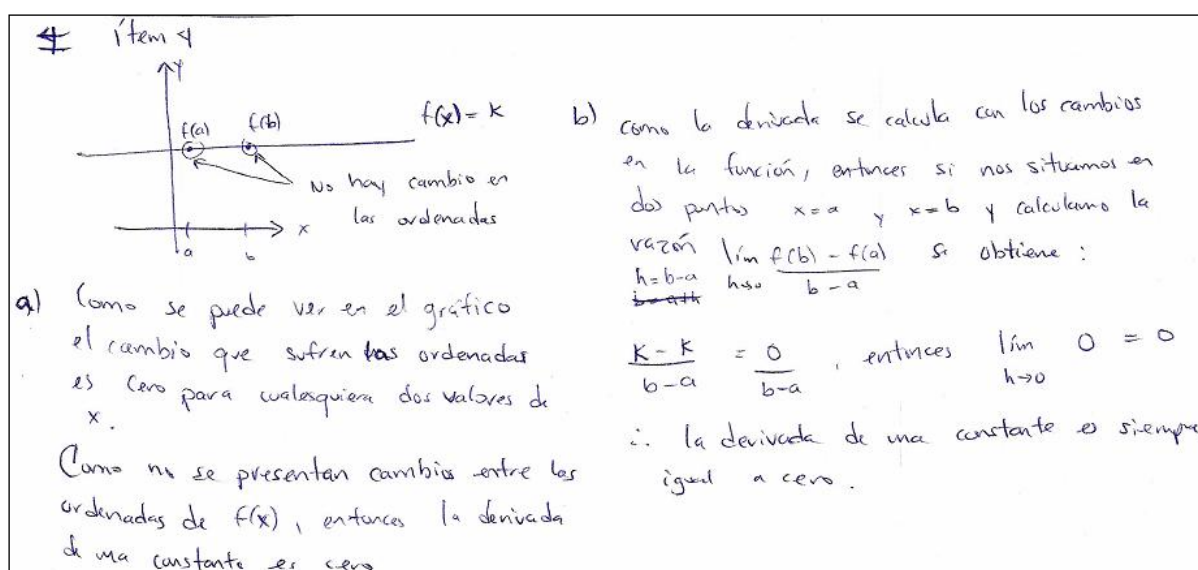 ítem 4
y
f(a) f(b) f(x) = K
No hay cambio en
las ordenadas
x
a b
a) Como se puede ver en el gráfico
el cambio que sufren las ordenadas
es cero para cualesquiera dos valores de
x.
Como no se presentan cambios entre las
ordenadas de f(x), entonces la derivada
de una constante es cero
b) como la derivada se calcula con los cambios
en la función, entonces si nos situamos en
dos puntos x=a y x=b y calculamo la
razón lím h→0 (f(b) - f(a))/(b - a) se obtiene:
h=b-a
(K - K)/(b - a) = 0/(b-a), entonces lím h→0 0 = 0
∴ la derivada de una constante es siempre
igual a cero.